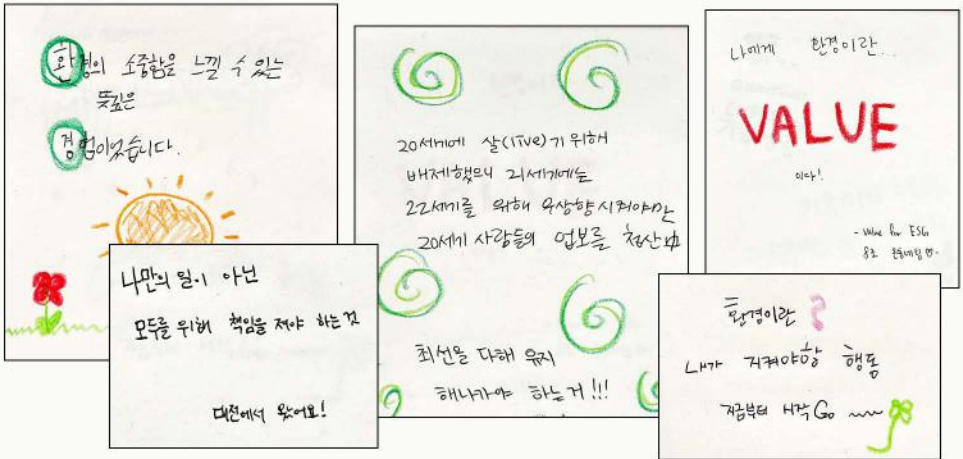 환경의 소중함을 느낄 수 있는
뜻깊은
경험이었습니다.
나만의 일이 아닌
모두를 위해 책임을 져야 하는 것
대전에서 왔어요!
20세기에 살(live)기 위해
배제했으니 21세기에는
22세기를 위해 우상향시켜야만
20세기 사람들의 업보를 청산
최선을 다해 유지
해나가야 하는 거!!!
나에게 환경이란...
VALUE
이다!
- Value for ESG
8조
환경이란?
내가 지켜야할 행동
지금부터 시작 Go